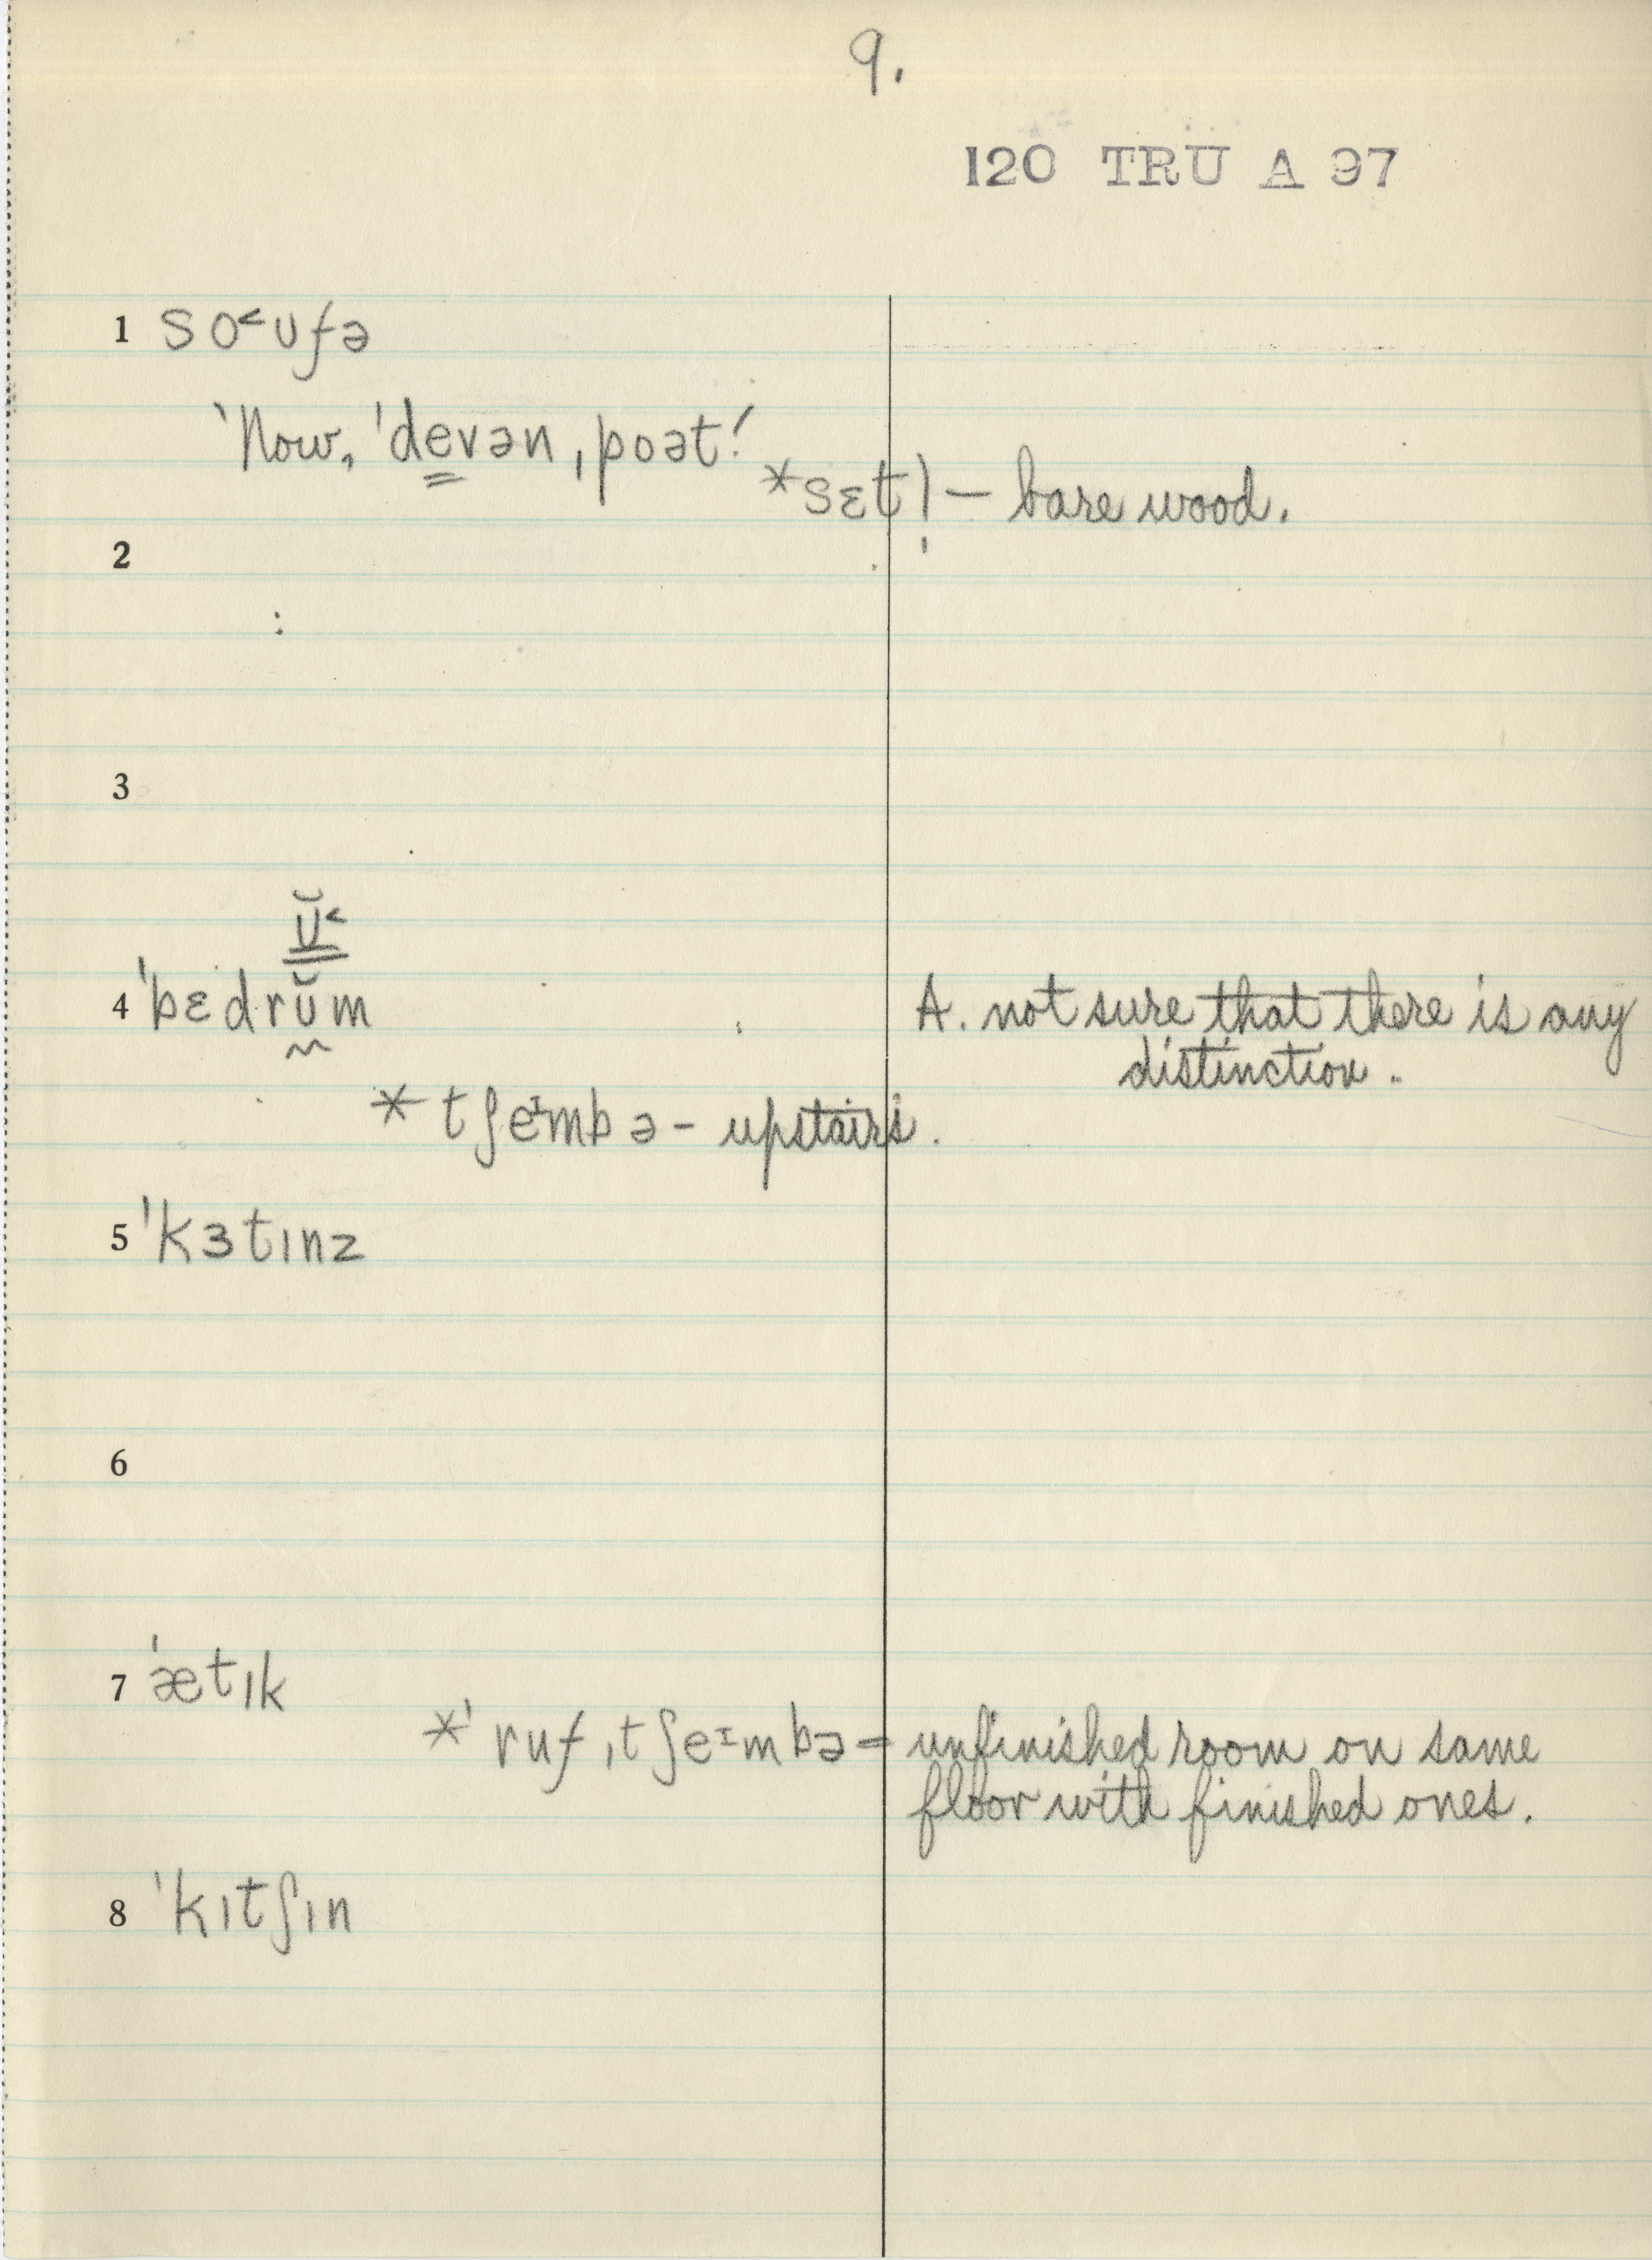 9.
120 TRU A 97
1 so˂ʊfə
'Now, 'devən ˌpoət!
*sɛtl̩ — bare wood.
2
3
ʊ̆˂
4 'bɛdrŭm
A. not sure that there is any
distinction.
* tʃeɪmbə - upstairs.
5 'kɜtɪnz
6
7 'ætɪk
*'ruf ˌtʃeɪmbə = unfinished room on same
floor with finished ones.
8 'kɪtʃɪn